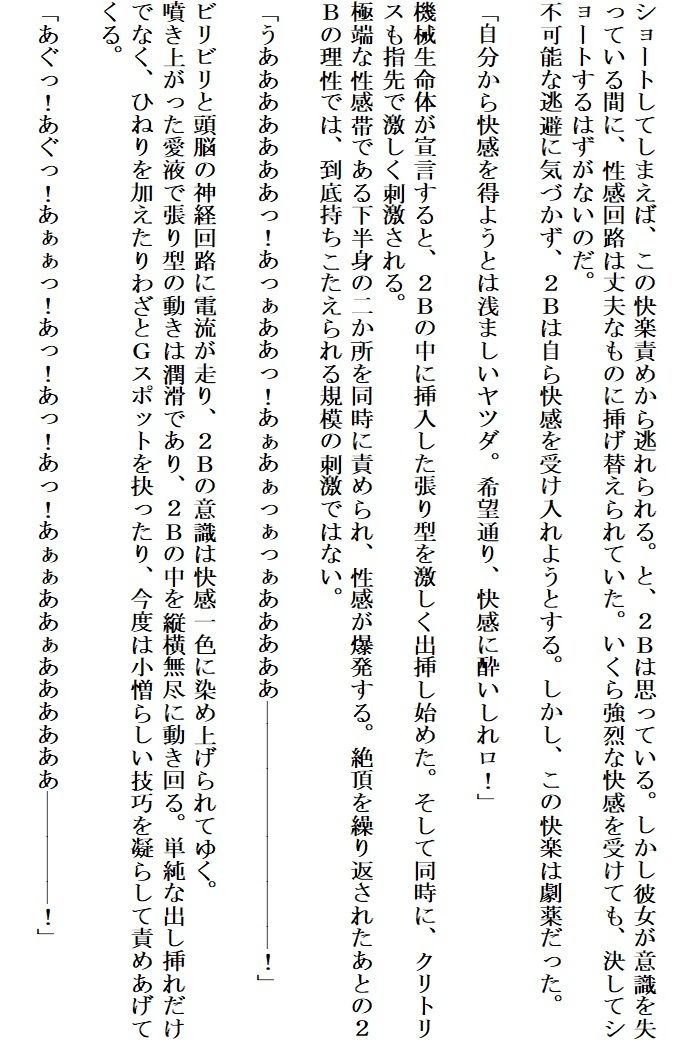 ショートしてしまえば、この快楽責めから逃れられる。と、２Ｂは思っている。しかし彼女が意識を失
っている間に、性感回路は丈夫なものに挿げ替えられていた。いくら強烈な快感を受けても、決してシ
ョートするはずがないのだ。
不可能な逃避に気づかず、２Ｂは自ら快感を受け入れようとする。しかし、この快楽は劇薬だった。
「自分から快感を得ようとは浅ましいヤツダ。希望通り、快感に酔いしれロ！」
機械生命体が宣言すると、２Ｂの中に挿入した張り型を激しく出挿し始めた。そして同時に、クリトリ
スも指先で激しく刺激される。
極端な性感帯である下半身の二か所を同時に責められ、性感が爆発する。絶頂を繰り返されたあとの２
Ｂの理性では、到底持ちこたえられる規模の刺激ではない。
「うあああああああっ！あっぁああっ！あぁあぁっぁっぁあああああ――――――――！」
ビリビリと頭脳の神経回路に電流が走り、２Ｂの意識は快感一色に染め上げられてゆく。
噴き上がった愛液で張り型の動きは潤滑であり、２Ｂの中を縦横無尽に動き回る。単純な出し挿れだけ
でなく、ひねりを加えたりわざとＧスポットを抉ったり、今度は小憎らしい技巧を凝らして責めあげて
くる。
「あぐっ！あぐっ！あぁぁっ！あっ！あっ！あっ！あぁぁああぁああああああ――――！」